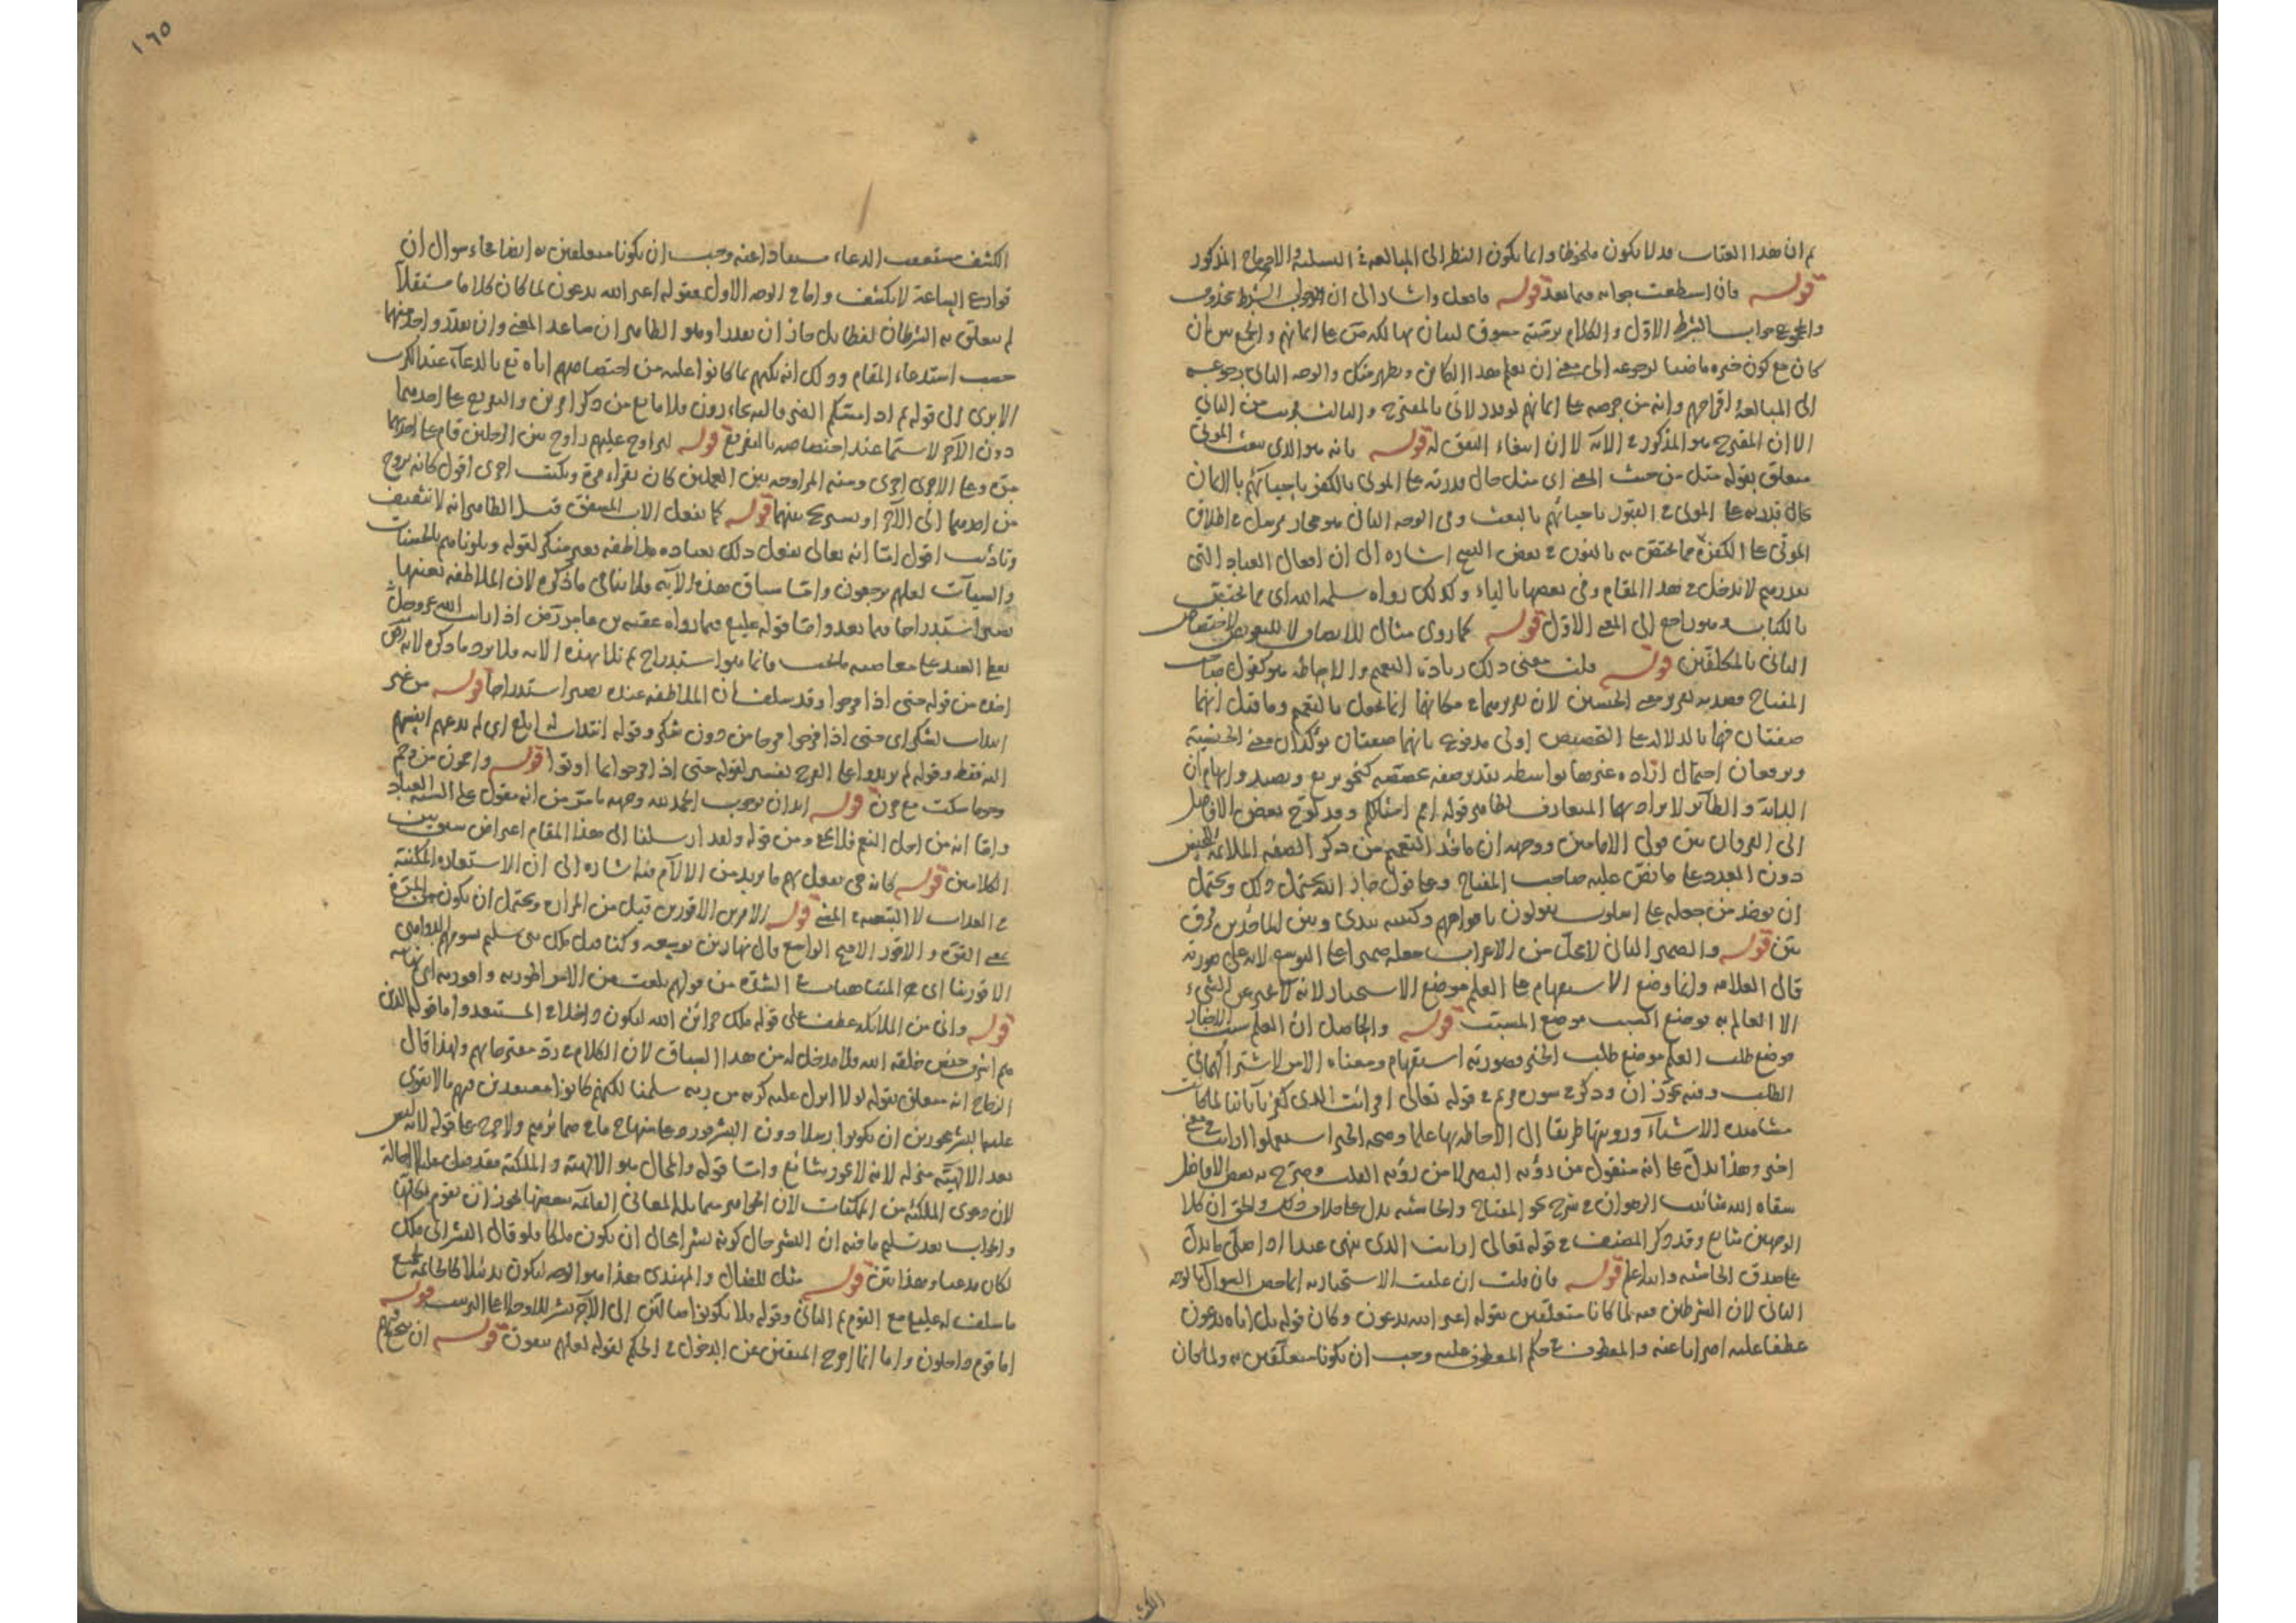 ثم ان هذا العتاب قد لا يكون ملحوظا وانما يكون النظر الى المبالغة في التسلية والاحتجاج المذكور
قوله فان استطعت جوابه فيما بعد قوله فافعل واشار الى ان جواب الشرط محذوف
والمجموع جواب الشرط الاول والكلام برمته مسوق لبيان تهالكه صلى على ايمانهم والجمع بين ان
كان مع كون خبره ماضيا لرجوعه الى معنى ان يعلم هذا الكائن ويظهر مثل والوجه الثاني رجوعه
الى المبالغة اقتراحهم وانه من حرصه على ايمانهم لو قدر لاتى بالمقترح والثالث قريب من الثاني
الا ان المقترح هو المذكور في الآية لا ان ابتغاء النفق له قوله بانه هو الذي يبعث الموتى
متعلق بقوله مثل من حيث المعنى اى مثل حال قدرته على الموتى بالكفر باحيائهم بالايمان
حال قدرته على الموتى في القبور باحيائهم بالبعث وفي الوجه الثاني هو مجاز مرسل في اطلاق
الموتى على الكفرة قوله مما يختص به بالنون في بعض النسخ اشارة الى ان افعال العباد التي
تقدرهم لا تدخل في هذا المقام وفي بعضها بالياء وكذلك رواه سلمه الله اى مما يختص
بالكتاب وهو راجع الى المعنى الاول قوله كما روى مثال للانصاف لا للتعويض لاختصاص
الثاني بالمكلفين قوله قلت معنى ذلك زيادة التعميم والاحاطة هو كقول صاحب
المفتاح قصد به تقرير معنى الجنسين لان تقريرهما في مكانهما انما يحول بالتعميم وما قيل انهما
صفتان فهما بالدلالة على التخصيص اولى مدفوع بانهما صفتان تؤكدان معنى الجنسية
ويرفعان احتمال ارادة غيرها بواسطة تقدير صفة مخصصة كنحو يرتع ويصيد وايهام ان
الدابة والطائر لا يراد بهما المتعارف لظاهر قوله امم امثالكم وقد لوح بعض الافاضل
الى الفرقان بين قولى الامامين ووجهه ان مأخذ التعميم من ذكر الصفة الملائمة للجنس
دون العدد على ما نص عليه صاحب المفتاح وعلى قول جار الله يحتمل ذلك ويحتمل
ان يؤخذ من جعله على اسلوب يقولون بافواههم وكتبته بيدى وبين المأخذين فرق
بين قوله والضمير الثاني لا محل من الاعراب جعله ضميرا على التوسع لانه على صورته
قال العلامة وانما وضع الاستفهام على العلم موضع الاستخبار لانه لا يخبر عن الشيء
الا العالم به فوضع السبب موضع المسبب قوله والحاصل ان العلم سبب للاخبار
موضع طلب العلم موضع طلب الخبر وصورته استفهام ومعناه الامر لاشتراكهما في
الطلب وفيه تجوز ان وذكر في سورة مريم في قوله تعالى افرأيت الذي كفر بآياتنا لما كانت
مشاهدة الاشياء ورؤيتها طريقا الى الاحاطة بها علما وصحة الخبر استعملوا ارأيت في معنى
اخبر وهذا يدل على انه منقول من رؤية البصر لا من رؤية القلب وصرح به بعض الافاضل
سقاه الله شآبيب الرضوان في شرح نحو المفتاح والحاشية يدل على خلاف ذلك والحق ان كلا
الوجهين شايع وقد ذكر المصنف في قوله تعالى ارأيت الذي ينهى عبدا اذا صلى ما يدل
على صدق الحاشية والله اعلم قوله فان قلت ان علقت الاستخبار به انما خص السؤال بالوجه
الثاني لان الشرطين فيه لما كانا متعلقين بقوله اغير الله تدعون وكان قوله بل اياه تدعون
عطفا عليه اضرابا عنه والمعطوف في حكم المعطوف عليه وجب ان يكونا متعلقين به ولما كان
الكشف
١٦٥
الكشف مستعقب الدعاء مستفادا عنه وجب ان يكونا متعلقين به ايضا فجاء سؤال ان
قوارع الساعة لا تكشف واما في الوجه الاول فقوله اغير الله تدعون لما كان كلاما مستقلا
لم يتعلق به الشرطان لفظا بل جاز ان يقدرا وهو الظاهر ان ساعد المعنى وان يقدر واحد منهما
حسب استدعاء المقام وذلك انه بكتهم بما كانوا عليه من اختصاصهم اياه تع بالدعاء عند الكرب
الا يرى الى قوله ثم اذا مسكم الضر فاليه تجأرون فلا مانع من ذكر امرين والتقريع على احدهما
دون الآخر لا سيما عند اختصاصه بالتقريع قوله ليراوح عليهم راوح بين الرجلين قام على احديهما
مرة وعلى الاخرى اخرى ومنه المراوحة بين العملين كان يقرأ مرة ويكتب اخرى اقول كانه يروح
من احدهما الى الآخر او يستريح بينهما قوله كما يفعل الاب المشفق قيل الظاهر انه لا تثقيف
وتأديب اقول اما انه تعالى يفعل ذلك بعباده ملاطفة فغير منكر لقوله وبلوناهم بالحسنات
والسيآت لعلهم يرجعون واما سياق هذه الآية فلا ينافى ما ذكره لان الملاطفة بعينها
تصير استدراجا فيما بعد واما قوله عليه فيما رواه عقبة بن عامر رض اذا رأيت الله عز وجل
يعطى العبد على معاصيه ما يحب فانما هو استدراج ثم تلا هذه الآية فلا يرد ما ذكره لانه
اخذه من قوله حتى اذا فرحوا وقد سلف ان الملاطفة عنده تصير استدراجا قوله من غير
انتداب لشكر اى حتى اذا فرحوا فرحا من دون شكر وقوله انتداب له ابلغ اى لم يدعهم انفسهم
اليه فقط وقوله لم يزيدوا على الفرح تفسير لقوله حتى اذا فرحوا بما اوتوا قوله واجمون من وجم
وجوما سكت مع حزن قوله ايذان بوجوب الحمد لله وجهه ما مر من انه مقول على السنة العباد
واما انه من اجل النعم فلا يخ ومن قوله ولقد ارسلنا الى هذا المقام اعتراض سيق بين
الكلامين قوله كانه حي يفعل بهم ما يريد من الآلام فيه اشارة الى ان الاستعارة المكنية
في العذاب لا التبعية في المس قوله الامرين الاقورين قيل من المرارة ويحتمل ان يكون من المرة
بمعنى القوة والاقور الامر الواسع قال
الاقورينا اى المتناهيات في الشدة من قولهم بلغت من الامر اطوريه واقوريه اى نهايته
قوله وانى من الملائكة عطف على قوله ملك خزائن الله ليكون داخلا في المستبعد واما قوله الذين
هم اشرف جنس خلقه الله فلا مدخل له من هذا السياق لان الكلام في رد مقترحاتهم ولهذا قال
الزجاج انه متعلق بقوله لولا انزل عليه آية من ربه سلمنا لكنهم كانوا معتقدين فيهم ما لا يقوى
عليها البشر مجوزين ان يكونوا رسلا دون البشر فورد على منهاج ما في ضمائرهم ولا حرج على قوله لانه ليس
بعد الالهية منزلة لانه لا غور بشائع واما قوله والمحال هو الالهية والملكية فقد قيل عليه لا احالة
لان دعوى الملكية من الممكنات لان الجواهر متماثلة والمعاني القائمة ببعضها يجوز ان تقوم بكلها
والجواب بعد تسليم ما فيه ان البشر حال كونه بشرا محال ان يكون ملكا فلو قال البشر انى ملك
لكان مدعيا وهذا بين قوله مثل للضال والمهتدى هذا هو الوجه ليكون تذييلا كالخاتمة لجميع
ما سلف له عليه مع القوم ثم الثاني وقوله فلا تكونوا ضالين الى الآخر نشر للاوجه على الترتيب قوله
اما قوم داخلون واما انما اخرج المتقين عن الدخول في الحكم لقوله لعلهم يتقون قوله ان ينجع فيهم